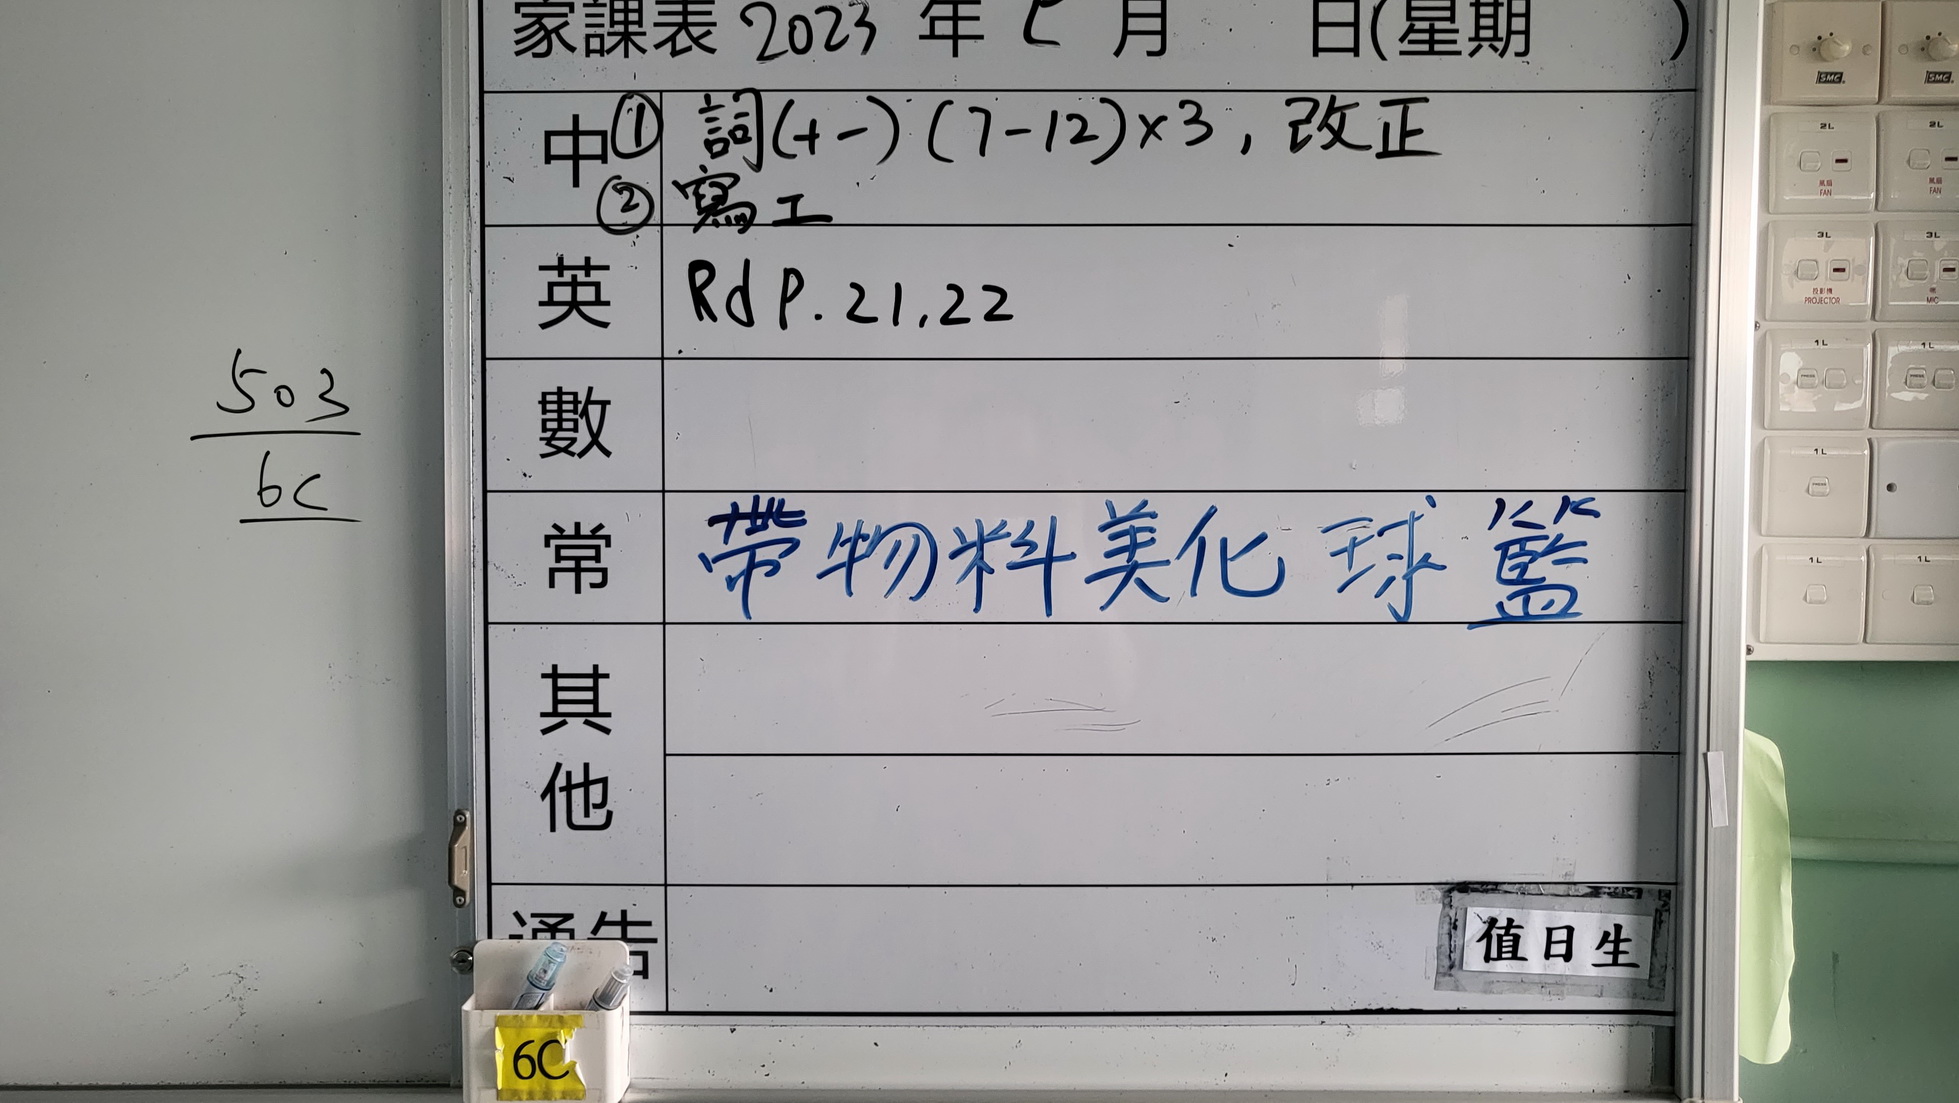 家課表 2023 年 月 日(星期 )
中 ① 詞(十一) (7-12)×3, 改正
② 寫工
英 Rd P. 21, 22
數
常 帶物料美化球籃
其他
通告
值日生
503
6C
6C
SMC
SMC
2L
風扇
FAN
2L
風扇
FAN
3L
投影機
PROJECTOR
3L
MIC
1L
1L
1L
1L
1L